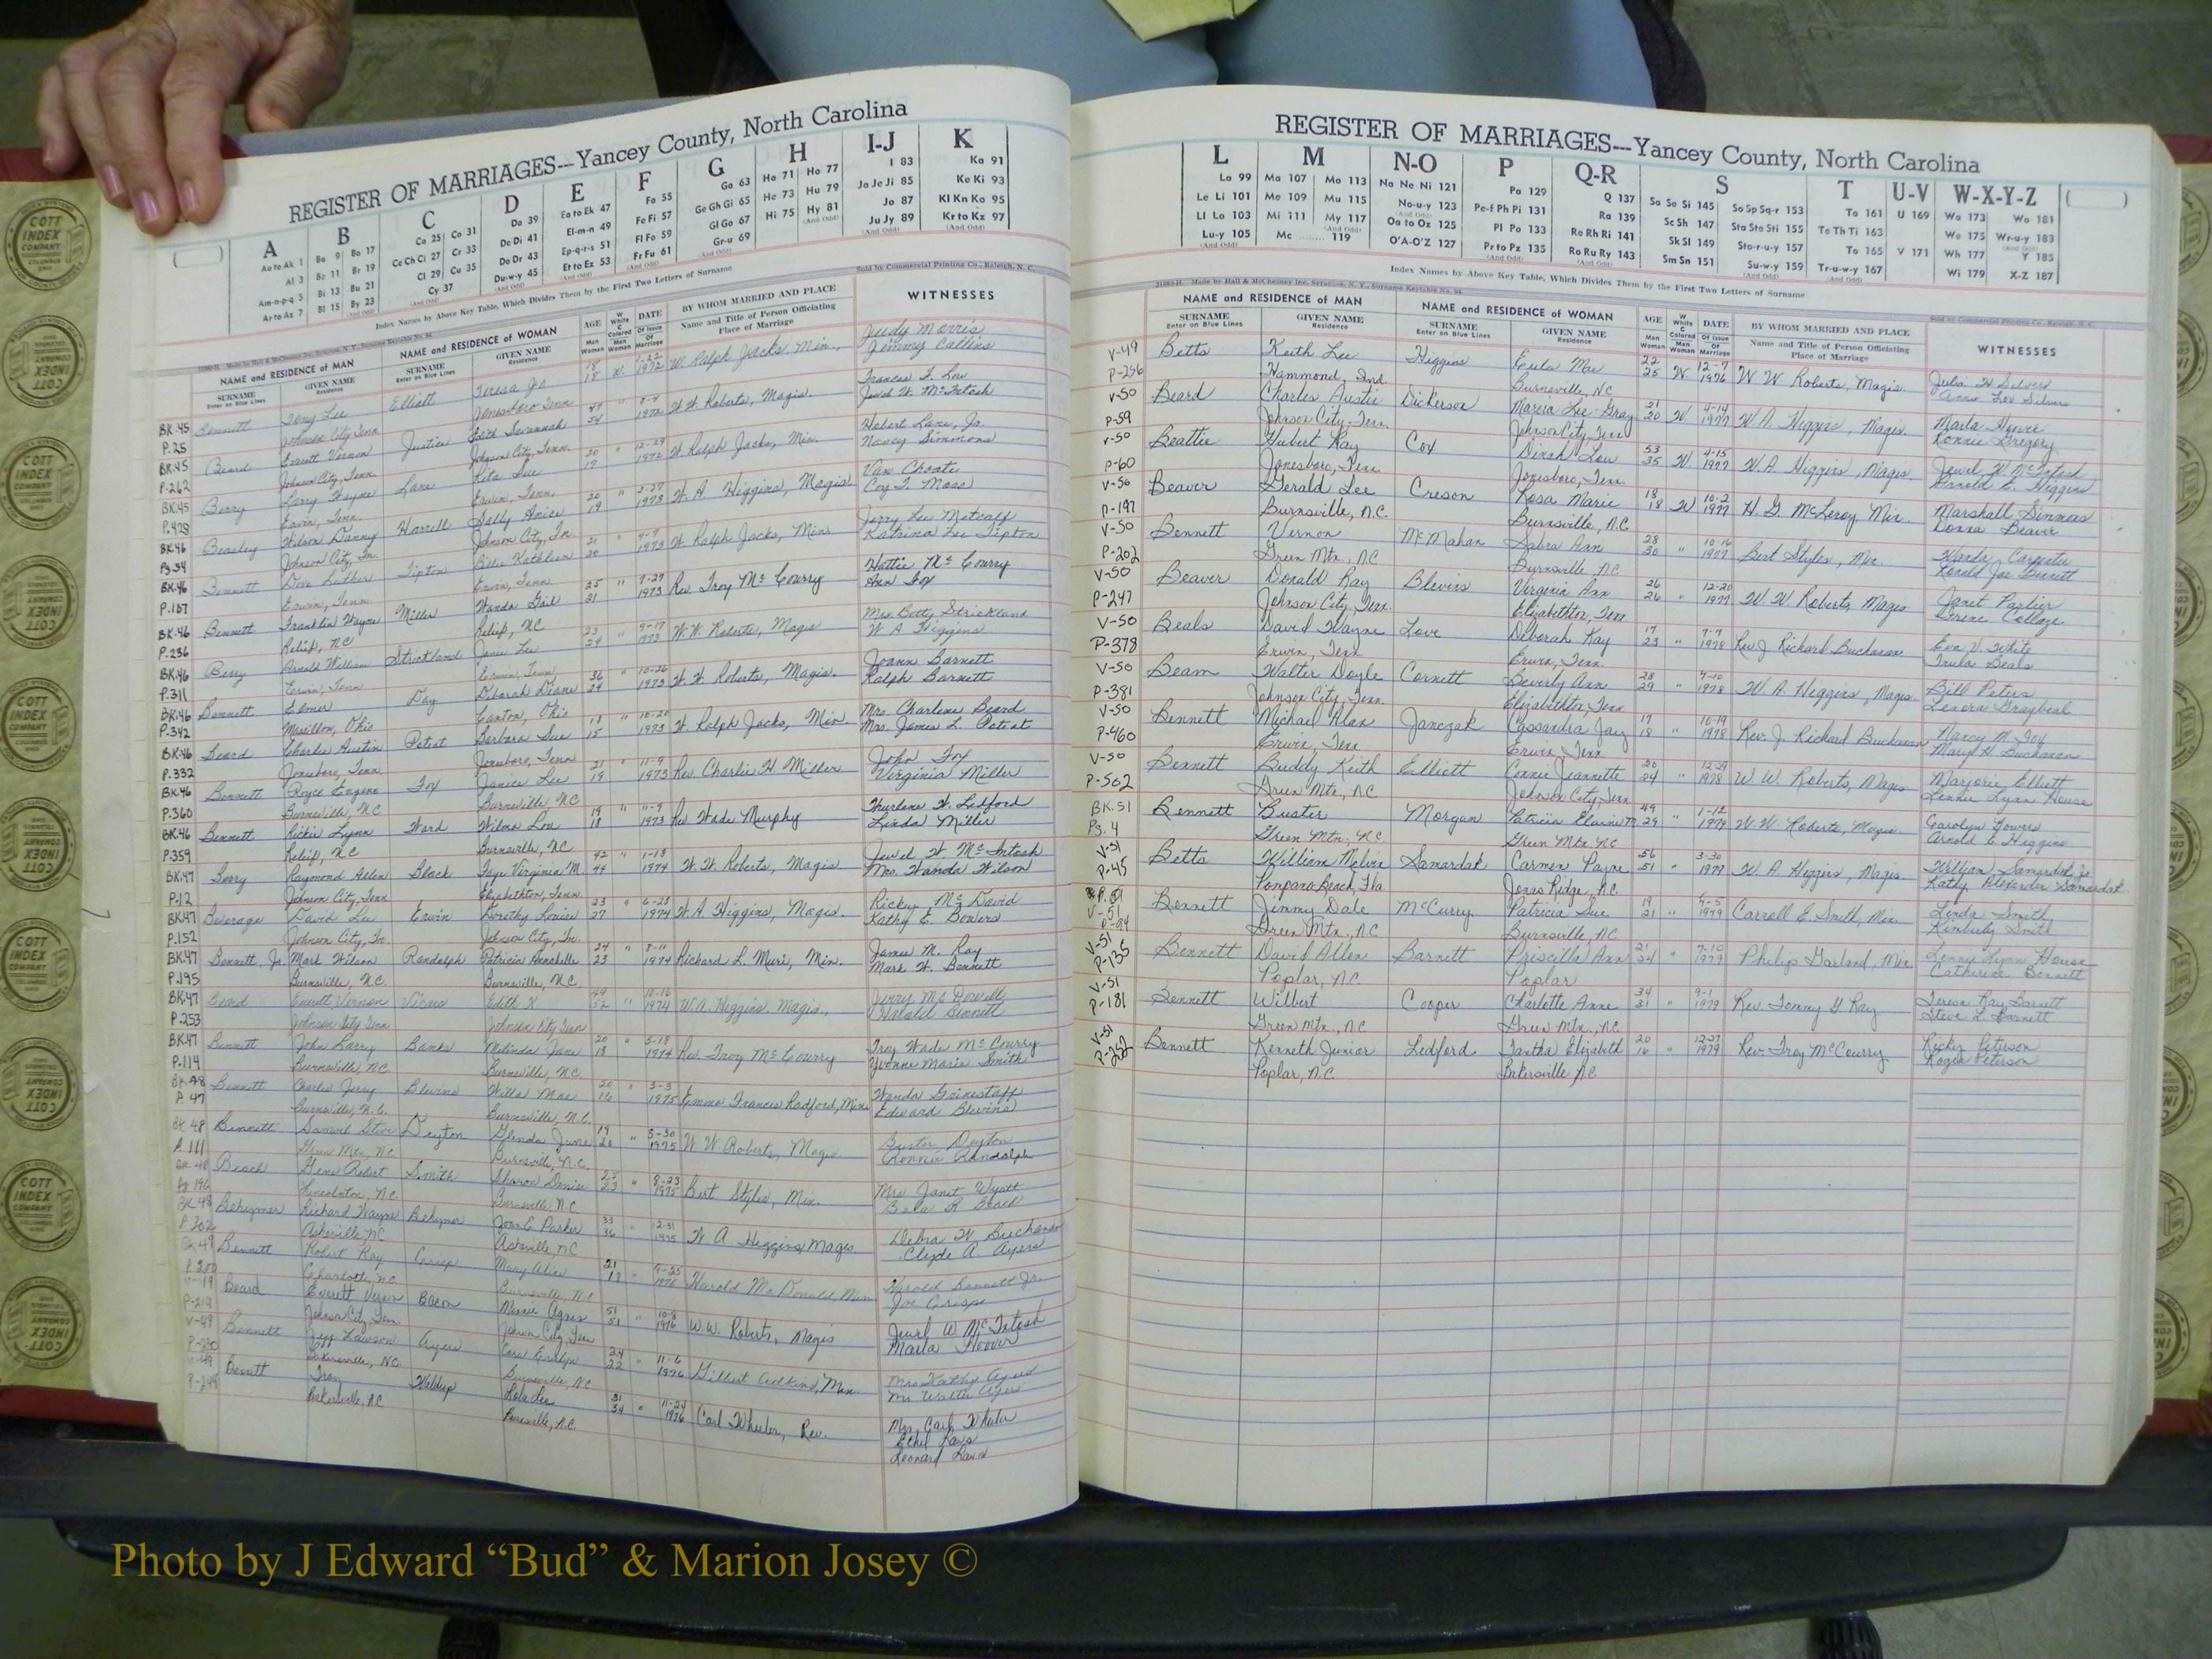 REGISTER OF MARRIAGES---Yancey County, North Carolina
A B C D E F G H I-J K
Aa to Ak 1 Ba 9 Bo 17 Ca 25 Co 31 Da 39 Ea to Ek 47 Fa 55 Ga 63 Ha 71 Ho 77 I 83 Ka 91
Al 3 Be 11 Br 19 Ce Ch Ci 27 Cr 33 De Di 41 El-m-n 49 Fe Fi 57 Ge Gh Gi 65 He 73 Hu 79 Ja Je Ji 85 Ke Ki 93
Am-n-p-q 5 Bi 13 Bu 21 Cl 29 Cu 35 Do Dr 43 Ep-q-r-s 51 Fl Fo 59 Gl Go 67 Hi 75 Hy 81 Jo 87 Kl Kn Ko 95
Ar to Az 7 Bl 15 By 23 Cy 37 Du-w-y 45 Et to Ez 53 Fr Fu 61 Gr-u 69 Ju Jy 89 Kr to Kz 97
Index Names by Above Key Table, Which Divides Them by the First Two Letters of Surname
Sold by Commercial Printing Co., Raleigh, N. C.
NAME and RESIDENCE of MAN NAME and RESIDENCE of WOMAN AGE DATE BY WHOM MARRIED AND PLACE WITNESSES
SURNAME GIVEN NAME SURNAME GIVEN NAME Name and Title of Person Officiating
Enter on Blue Lines Residence Enter on Blue Lines Residence Place of Marriage
BK.45 Bennett Tony Lee Elliott Teresa Jo 18 W. 1-22 W. Ralph Jacks Min., Judy Morris
P.25 Johnson City, Tenn Jonesboro Tenn 18 1972 Jimmy Callins
BK.45 Beard Everett Vernon Justice Edith Savannah 8-4 W. W. Roberts, Magis. Frances L. Lou
P.262 Johnson City, Tenn. Johnson City, Tenn. 54 1972 Jewel W. McIntosh
BK.45 Berry Larry Wayne Lane Rita Sue 20 12-29 W. Ralph Jacks, Min. Hobert Lane, Jr.
P.429 Erwin, Tenn. Erwin, Tenn. 17 1972 Nancy Simmons
BK.46 Beasley Wilson Danny Harrell Sally Anice 20 2-27 W. A Higgins, Magis. Van Choate
Pg.54 Johnson City, Tn. Johnson City, Tn. 19 1973 Coy T. Moss
BK.46 Bennett Dove Luther Tipton Billie Kathleen 21 W. Ralph Jacks, Min. Jerry Lee Metcalf
P.187 Erwin, Tenn. Erwin, Tenn. 20 1973 Katrina Lee Tipton
BK.46 Bennett Franklin Wayne Miller Wanda Gail 25 7-29 Rev. Troy McCourry Hattie McCourry
P.236 Relief, NC Relief, NC 21 1973 Ann Fox
BK.46 Berry Arnold William Strickland Janie Lee 23 9-17 W. W. Roberts, Magis Mrs. Betty Strickland
P.311 Erwin, Tenn Erwin, Tenn 24 1973 W A Higgins
BK.46 Bennett Elmer Day Deborah Diane 36 10-26 W. W. Roberts, Magis. Joann Barnett
P.342 Massillon, Ohio Canton, Ohio 24 1973 Ralph Barnett
BK.46 Beard Charles Austin Poteat Barbara Sue 18 10-20 W. Ralph Jacks, Min. Mrs. Charlene Beard
P.332 Jonesboro, Tenn. Jonesboro, Tenn 15 1973 Mrs. James L. Poteat
BK.46 Bennett Royce Eugene Fox Janice Lee 21 11-9 Rev. Charlie H. Miller John Fox
P.360 Burnsville, NC Burnsville, NC 19 1973 Virginia Miller
BK.46 Bennett Rickie Lynn Ward Wilma Lou 19 11-9 Rev Wade Murphy Thurlene W. Ledford
P.359 Relief, NC Burnsville, NC 18 1973 Linda Miller
BK.47 Berry Raymond Allen Black Faye Virginia M. 42 1-13 W. W. Roberts, Magis Jewel W. McIntosh
P.12 Johnson City, Tenn Elizabethton, Tenn. 44 1974 Mrs. Wanda Wilson
BK.47 Beverage David Lee Erwin Dorothy Louise 23 6-23 W. A Higgins, Magis. Ricky McDavid
P.152 Johnson City, Tn. Johnson City, Tn. 27 1974 Kathy E. Bowers
BK.47 Bennett, Jr. Mark Wilson Randolph Patricia Annabelle 24 8-11 Richard L. Muri, Min. James M. Ray
P.195 Burnsville, N.C. Burnsville, N.C. 23 1974 Mark W. Bennett
BK.47 Beard Everett Vernon Vicars Edith K 49 10-16 W.A. Higgins. Magis., Jerry McDowell
P.253 Johnson City Tenn Johnson City Tenn 52 1974 Harold Bennett
BK.47 Bennett John Larry Banks Melinda Jane 20 5-18 Rev. Troy McCourry Troy Wade McCourry
P.114 Burnsville, NC Burnsville, N.C. 18 1974 Yvonne Marie Smith
BK.48 Bennett Charles Jerry Blevins Willa Mae 20 3-3 Emma Frances Radford, Min Wanda Grindstaff
P. 47 Burnsville, N.C. Burnsville, N.C. 16 1975 Edward Blevins
BK 48 Bennett Samuel Steve Deyton Glenda June 19 5-30 W. W. Roberts, Magis Buster Deyton
P. 111 Green Mtn, NC Burnsville, N.C. 20 1975 Ronnie Randolph
BK 48 Beach Gene Robert Smith Sharon Denise 25 8-23 Bert Styles, Min. Mrs Janet Wyatt
Pg 196 Lincolnton, NC Burnsville, N.C. 23 1975 Bela R Beach
BK 48 Behymer Richard Wayne Behymer Joan E. Parker 33 12-31 W A Higgins Magis. Debra W Buchanan
P 302 Asheville, NC Asheville, NC 36 1975 Clyde A. Ayers
BK 49 Bennett Robert Ray Crisp Mary Alice 21 9-25 Harold McDonald, Min Harold Bennett Jr.
P. 200 Charlotte, NC Burnsville, NC 19 1976 Joe Crisp
V-49 Beard Everett Vernon Bacon Minnie Agnes 51 10-8 W. W. Roberts, Magis Jewel W McIntosh
P-219 Johnson City, Tenn. Johnson City, Tenn 51 1976 Marla Hoover
V-49 Bennett Jeff Lawson Ayers Cora Evelyn 24 11-6 Gilbert Adkins, Min. Mrs Kathy Ayers
P-230 Bakersville, NC. Burnsville, NC 22 1976 Mr Walter Ayers
V-49 Bennett Troy Waldrup Lola Lee 31 11-24 Carl Wheeler, Rev. Mrs. Carl Wheeler
P-249 Bakersville, N.C. Burnsville, N.C. 34 1976 Ethel Laws
Leonard Laws
REGISTER OF MARRIAGES---Yancey County, North Carolina
L M N-O P Q-R S T U-V W-X-Y-Z
La 99 Ma 107 Mo 113 Na Ne Ni 121 Pa 129 Q 137 Sa Se Si 145 So Sp Sq-r 153 Ta 161 U 169 Wa 173 Wo 181
Le Li 101 Me 109 Mu 115 No-u-y 123 Pe-f Ph Pi 131 Ra 139 Sc Sh 147 Sta Ste Sti 155 Te Th Ti 163 We 175 Wr-u-y 183
Ll Lo 103 Mi 111 My 117 Oa to Oz 125 Pl Po 133 Re Rh Ri 141 Sk Sl 149 Sto-r-u-y 157 To 165 V 171 Wh 177 Y 185
Lu-y 105 Mc 119 O'A-O'Z 127 Pr to Pz 135 Ro Ru Ry 143 Sm Sn 151 Su-w-y 159 Tr-u-w-y 167 Wi 179 X-Z 187
Index Names by Above Key Table, Which Divides Them by the First Two Letters of Surname
Made by Hall & McChesney Inc. Syracuse, N. Y., Surname Keytable No. 94.
NAME and RESIDENCE OF MAN NAME and RESIDENCE OF WOMAN AGE DATE BY WHOM MARRIED AND PLACE WITNESSES
SURNAME GIVEN NAME SURNAME GIVEN NAME Name and Title of Person Officiating
Enter on Blue Lines Residence Enter on Blue Lines Residence Place of Marriage
V-49 Betts Keith Lee Higgins Eula Mae 22 12-7 W W. Roberts, Magis. Julia H Silvers
P-256 Hammond, Ind. Burnsville, NC 25 W. 1976 Anna Lou Silvers
V-50 Beard Charles Austin Dickerson Marcia Lee Gray 21 4-14 W. A. Higgins, Magis. Marla Hoover
P-59 Johnson City, Tenn. Johnson City, Tenn 20 W 1977 Ronnie Gregory
V-50 Beattie Hubert Ray Cox Dinah Lou 53 4-15 W. A Higgins, Magis. Jewel W McIntosh
P-60 Jonesboro, Tenn Jonesboro, Tenn. 35 W 1977 Arnold E. Higgins
V-56 Beaver Gerald Lee Creson Rosa Marie 18 10-2 H. G. McLeroy, Min. Marshall Simmons
P-197 Burnsville, N.C. Burnsville, N.C. 18 W 1977 Donna Beaver
V-50 Bennett Vernon McMahan Sabra Ann 28 10-16 Bert Styles, Min. Wanda Carpenter
P-202 Green Mtn., NC Burnsville, NC 30 " 1977 Ronald Joe Bennett
V-50 Beaver Donald Ray Blevins Virginia Ann 26 12-20 W. W. Roberts, Magis Janet Parlier
P-247 Johnson City, Tenn. Elizabethton, Tenn 26 " 1977
V-50 Beals David Wayne Love Deborah Kay 17 7-7 Rev. J Richard Buchanan Eva V. White
P-378 Erwin, Tenn Erwin, Tenn. 23 " 1978 Trula Beals
V-50 Beam Walter Doyle Cornett Beverly Ann 28 7-10 W. A. Higgins, Magis Bill Peters
P-381 Johnson City, Tenn. Elizabethton, Tenn 29 " 1978 Lenora Graybeal
V-50 Bennett Michael Alan Janczak Cassandra Jay 17 10-19 Rev. J. Richard Buchanan Nancy M. Fox
P-460 Erwin, Tenn Erwin, Tenn 18 " 1978 Mary H Buchanan
V-50 Bennett Buddy Keith Elliott Connie Jeannette 20 12-29 W. W. Roberts, Magis Marjorie Elliott
P-502 Green Mtn, NC Johnson City, Tenn 24 " 1978 Lennie Lynn House
BK.51 Bennett Buster Morgan Patricia Elaine M. 49 1-12 W. W. Roberts, Magis Carolyn Bowers
Pg. 4 Green Mtn. NC Green Mtn NC 29 " 1979 Arnold E Higgins
V-51 Betts William Melvin Samardak Carmen Payne 56 3-30 W. A. Higgins, Magis William Samardak Jr
P-45 Pompano Beach, Fla Jonas Ridge, N.C. 51 " 1979 Kathy Alexander Samardak
V-51 Bennett Jimmy Dale McCurry Patricia Sue 19 Carroll E. Smith, Min. Linda Smith
P-94 Green Mtn., N.C Burnsville, N.C. 21 " 1979 Kimberly Smith
V-51 Bennett David Allen Barnett Priscilla Ann 21 7-10 Philip Garland, Min Lenny Lynn House
P-135 Poplar, N.C. Poplar 24 " 1979 Catherine Bennett
V-51 Bennett Wilbert Cooper Charlotte Anne 34 9-1 Rev Tommy G Ray Teresa Ray Barnett
P-181 Green Mtn., N.C Green Mtn., N.C. 31 " 1979 Steve L Barnett
V-51 Bennett Kenneth Junior Ledford Tantha Elizabeth 20 12-27 Rev. Troy McCourry Ricky Peterson
P-252 Poplar, N.C. Bakersville N.C. 16 " 1979 Roger Peterson
COTT
INDEX
COMPANY
Photo by J Edward “Bud” & Marion Josey ©